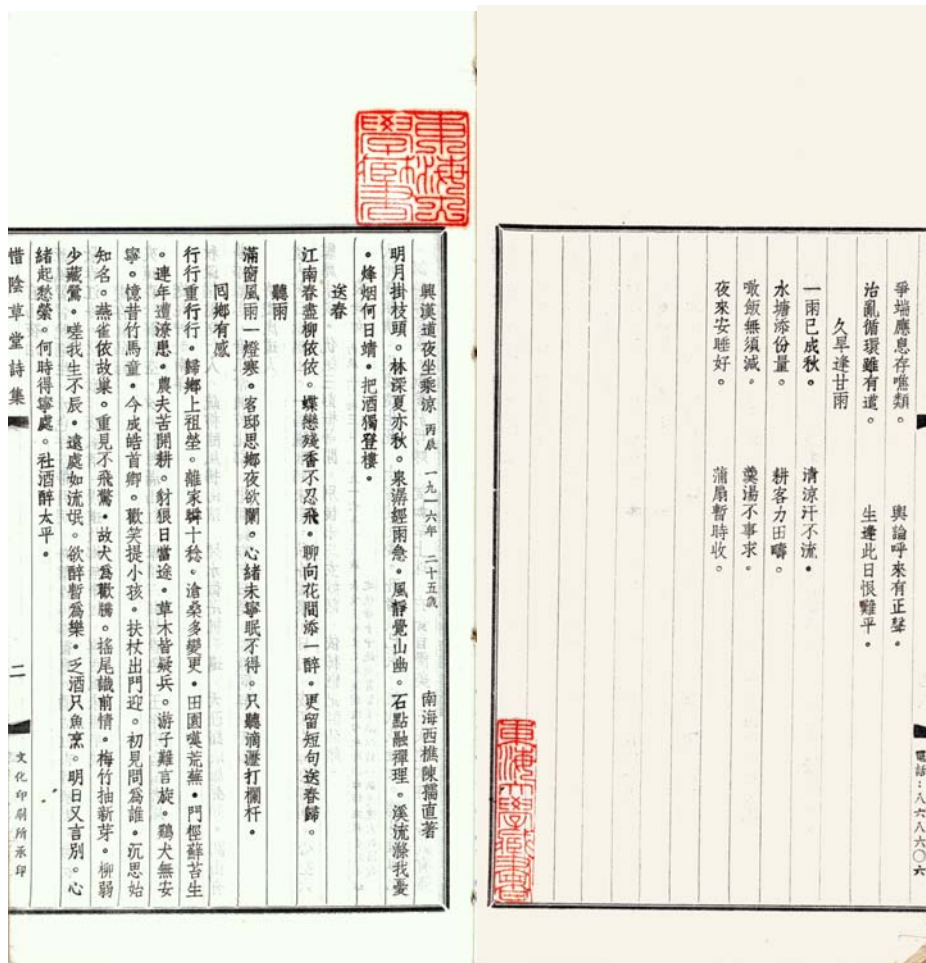 爭端應息存噍類。 輿論呼來有正聲。
治亂循環雖有道。 生逢此日恨難平。
久旱逢甘雨
一雨已成秋。 清涼汗不流。
水塘添份量。 耕客力田疇。
噉飯無須減。 羹湯不事求。
夜來安睡好。 蒲扇暫時收。
電話:八六八六〇六
東海大學藏書
東海大學藏書
興漢道夜坐乘涼 丙辰 一九一六年 二十五歲 南海西樵陳獨直著
明月掛枝頭。林深夏亦秋。泉潺經雨急。風靜覺山幽。石點融禪理。溪流滌我憂
。烽烟何日靖。把酒獨登樓。
送春
江南春盡柳依依。蝶戀殘香不忍飛。聊向花間添一醉。更留短句送春歸。
聽雨
滿窗風雨一燈寒。客邸思鄉夜欲闌。心緒未寧眠不得。只聽滴瀝打欄杆。
囘鄉有感
行行重行行。歸鄉上祖塋。離家纔十稔。滄桑多變更。田園嘆荒蕪。門徑蘚苔生
。連年遭潦患。農夫苦開耕。豺狼日當途。草木皆疑兵。游子難言旋。鷄犬無安
寧。憶昔竹馬童。今成皓首卿。歡笑提小孩。扶杖出門迎。初見問爲誰。沉思始
知名。燕雀依故巢。重見不飛驚。故犬爲歡騰。搖尾識前情。梅竹抽新芽。柳弱
少藏鶯。嗟我生不辰。遠處如流氓。欲醉暫爲樂。乏酒只魚烹。明日又言別。心
緒起愁縈。何時得寧處。社酒醉太平。
惜陰草堂詩集 二 文化印刷所承印